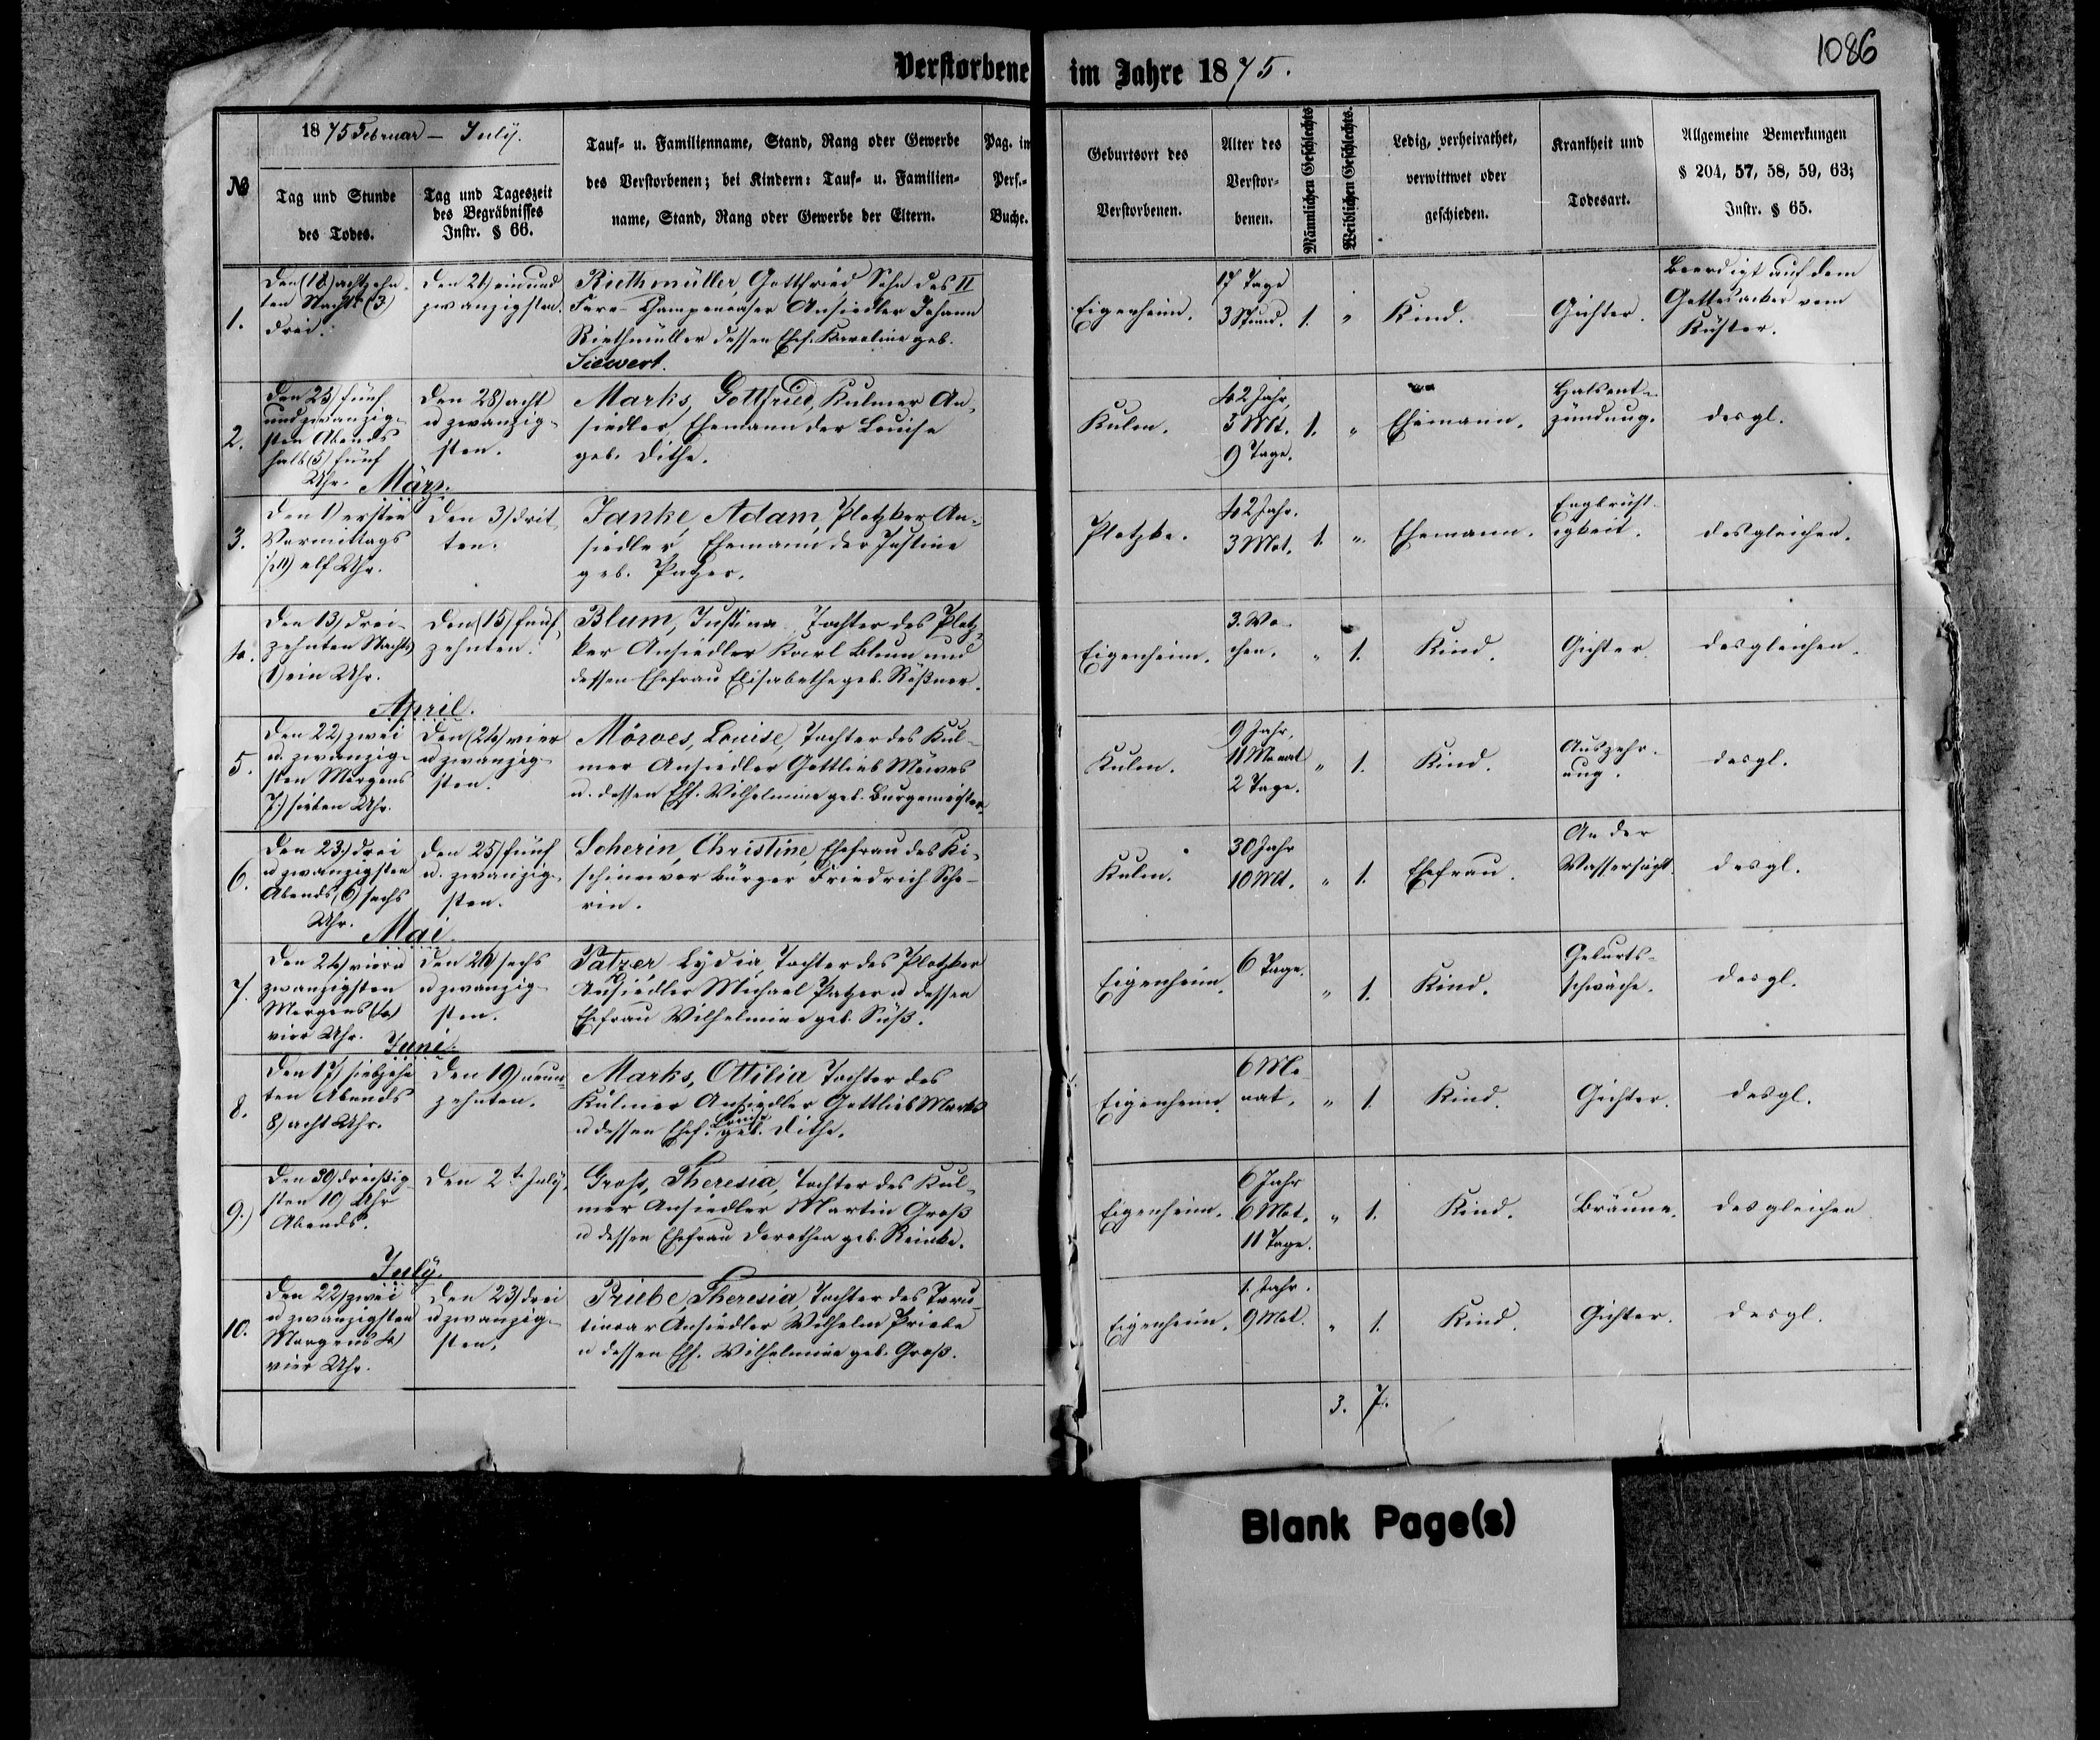 1086
Verstorbene im Jahre 1875.
1875 Februar – July.
№
Tag und Stunde
des Todes.
Tag und Tageszeit
des Begräbnisses
Instr. § 66.
Tauf- u. Familienname, Stand, Rang oder Gewerbe
des Verstorbenen; bei Kindern: Tauf- u. Familien-
name, Stand, Rang oder Gewerbe der Eltern.
Pag. im
Pers.-
Buche.
Geburtsort des
Verstorbenen.
Alter des
Verstor-
benen.
Männlichen Geschlechts
Weiblichen Geschlechts.
Ledig, verheirathet,
verwittwet oder
geschieden.
Krankheit und
Todesart.
Allgemeine Bemerkungen
§ 204, 57, 58, 59, 63;
Instr. § 65.
1.
Den (18) achtzehn-
ten Nachts (3)
drei.
Den 21) einund
zwanzigsten.
Riethmüller, Gottfried Sohn des II
Fere-Champenoaser Ansiedler Johann
Riethmüller dessen Ehef. Karoline geb.
Siewert.
Eigenheim.
17 Tage
3 Stund.
1.
"
Kind.
Gichter.
Beerdigt auf dem
Gottesacker vom
Küster.
2.
Den 25) fünf
und zwanzig-
sten Abends
halb (5) fünf
Uhr.
Den 28) acht
u zwanzig-
sten.
Marks, Gottfried, Kulmer An-
siedler, Ehemann der Louise
geb. Dithe.
Kulm.
42 Jahr,
3 Mt.
9 Tage.
1.
"
Ehemann.
Halsent-
zündung.
desgl.
März.
3.
Den 1) ersten
Vormittags
1/2 11) elf Uhr.
Den 3) drit-
ten.
Janke, Adam, Plotzker An-
siedler, Ehemann der Justine
geb. Patzer.
Plotzke.
42 Jahr.
3 Mot.
1.
"
Ehemann.
Engbrüst-
igkeit.
desgleichen.
4.
Den 13) drei-
zehnten Nachts
1) ein Uhr.
Den (15) fünf-
zehnten.
Blum, Justina, Tochter des Plotz-
ker Ansiedler Karl Blum und
dessen Ehefrau Elisabetha geb. Rößner.
Eigenheim.
3. Wo-
chen.
"
1.
Kind.
Gichter.
desgleichen.
April.
5.
Den 22) zwei
u. zwanzig-
sten Morgens
7) sieben Uhr.
Den (24) vier
u zwanzig-
sten.
Möwes, Louise, Tochter des Kul-
mer Ansiedler Gottlieb Möwes
u. dessen Ehf. Wilhelmine geb. Burgemeister.
Kulm.
9 Jahr,
11 Monat
2 Tage.
"
1.
Kind.
Auszehr-
ung.
desgl.
6.
Den 23) drei
u zwanzigsten
Abends (6) sechs
Uhr.
Den 25) fünf
u. zwanzig-
sten.
Scherin, Christine, Ehefrau des Ki-
schinewer Bürger Friedrich Sche-
rin.
Kulm.
30 Jahr
10 Mt.
"
1.
Ehefrau.
An der
Wassersucht.
desgl.
Mai.
7.
Den 24) vier u
zwanzigsten
Morgens (4)
vier Uhr.
Den 26) sechs
u zwanzig-
sten.
Patzer Lydia, Tochter des Plotzker
Ansiedler Michael Patzer u dessen
Ehefrau Wilhelmine geb. Süß.
Eigenheim.
6 Tage.
"
1.
Kind.
Geburts-
schwäche.
desgl.
Juni.
8.
Den 17) siebzehn
ten Abends
8) acht Uhr.
Den 19) neun-
zehnten.
Marks, Ottilia Tochter des
Kulmer Ansiedler Gottlieb Marks
u dessen Ehef. Louise geb. Dithe.
Eigenheim.
6 Mo
nat.
"
1.
Kind.
Gichter.
desgl.
9.)
Den 30) dreißig-
sten 10 Uhr
Abends.
Den 2t. July.
Groß, Theresia, Tochter des Kul-
mer Ansiedler Martin Groß
u dessen Ehefrau Dorothea geb. Reinke.
Eigenheim.
6 Jahr
6 Mot.
11 Tage.
"
1.
Kind.
Bräune.
desgleichen
July.
10.
Den 22) zwei
u zwanzigsten
Morgens 4)
vier Uhr.
Den 23) drei
u zwanzig-
sten.
Priebe, Theresia, Tochter des Taru-
tinoar Ansiedler Wilhelm Priebe
u dessen Ehf. Wilhelmine geb. Groß.
Eigenheim.
1. Jahr.
9 Mot.
"
1.
Kind.
Gichter.
desgl.
3.
7.
Blank Page(s)